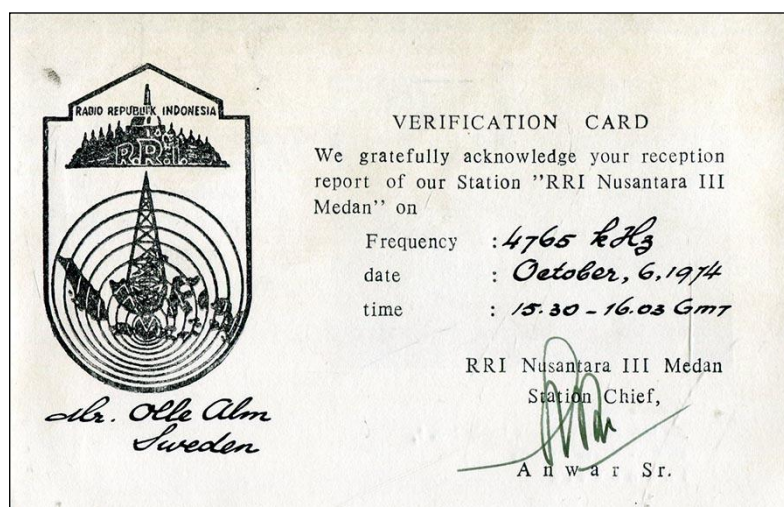 RADIO REPUBLIK INDONESIA
R.R.I.
Mr. Olle Alm
Sweden
VERIFICATION CARD
We gratefully acknowledge your reception
report of our Station "RRI Nusantara III
Medan" on
Frequency : 4765 kHz
date : October, 6, 1974
time : 15.30 - 16.03 GMT
RRI Nusantara III Medan
Station Chief,
Anwar Sr.